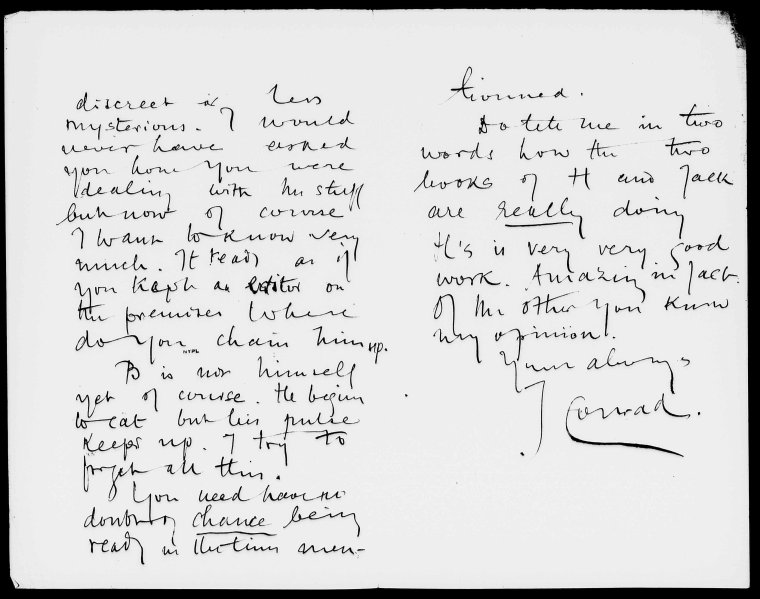 discreet or less
mysterious. I would
never have asked
you how you were
dealing with his stuff
but now of course
I want to know very
much. It reads as if
you kept an editor on
the premises. Where
do you chain him up.
NYPL
B is not himself
yet of course. He begins
to eat but his pulse
keeps up. I try to
forget all this.
You need have no
doubt of chance being
ready in the time men-
tionned.
Do tell me in two
words how the two
books of H and Jack
are really doing
H's is very very good
work. Amazing in fact.
Of the other you know
my opinion.
Yours always
J Conrad.